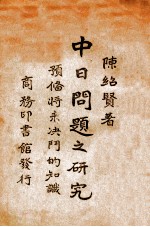 陳紹賢著
中日問題之研究
預備將來決鬥的知識
商務印書館發行